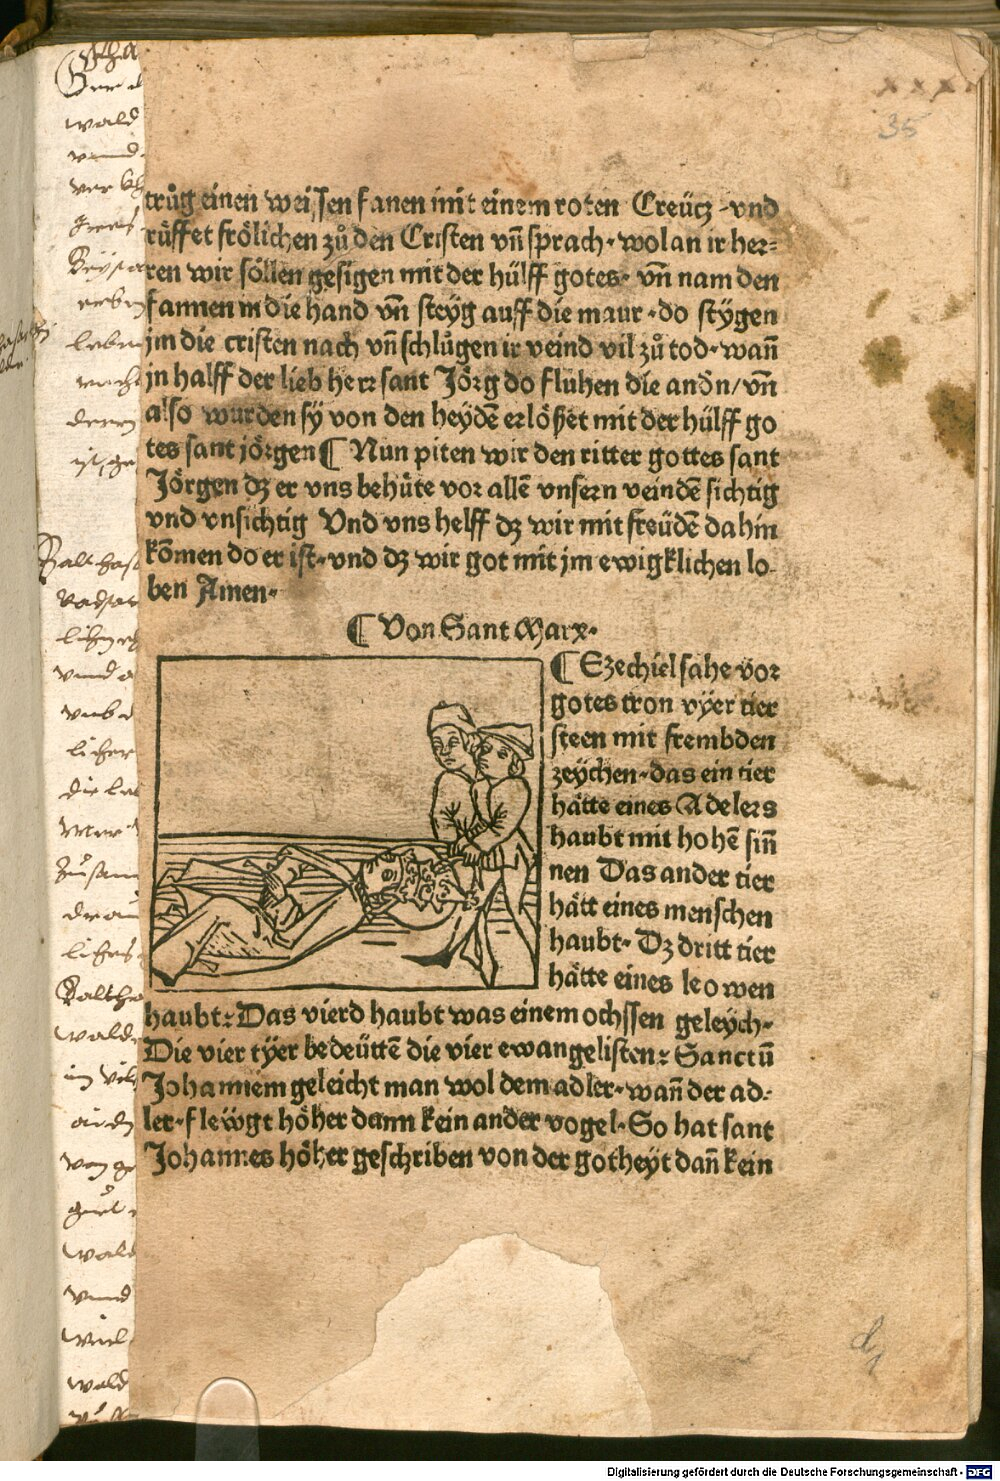 xxx
35
trůg einen weissen fanen mit einem roten Creücz ·vnd
rüffet frölichen zů den Cristen vñ sprach· wolan ir her⸗
ren wir söllen gesigen mit der hülff gotes· vñ nam den
fannen in die hand vñ steyg auff die maur ·do stygen
jm die cristen nach vñ schlůgen ir veind vil zů tod· wañ
jn halff der lieb herr sant Jörg do fluhen die andn/ vñ
also wurden sy von den heydē erlößet mit der hülff go
tes sant jörgen ¶ Nun piten wir den ritter gottes sant
Jörgen dz er vns behüte vor allē vnsern veindē sichtig
vnd vnsichtig Vnd vns helff dz wir mit freüdē dahin
kōmen do er ist· vnd dz wir got mit jm ewigklichen lo⸗
ben Amen·
¶ Von Sant Marx·
¶ Ezechiel sahe vor
gotes tron vyer tier
steen mit frembden
zeychen· das ein tier
hätte eines Adelers
haubt mit hohē siñ
nen Das ander tier
hätt eines menschen
haubt· Dz dritt tier
hätte eines leowen
haubt: Das vierd haubt was einem ochssen geleych·
Die vier tyer bedeüttē die vier ewangelisten: Sanctū
Johannem geleicht man wol dem adler· wañ der ad⸗
ler· flewgt höher dann kein ander vogel· So hat sant
Johannes höher geschriben von der gotheyt dañ kein
d1
Digitalisierung gefördert durch die Deutsche Forschungsgemeinschaft - DFG